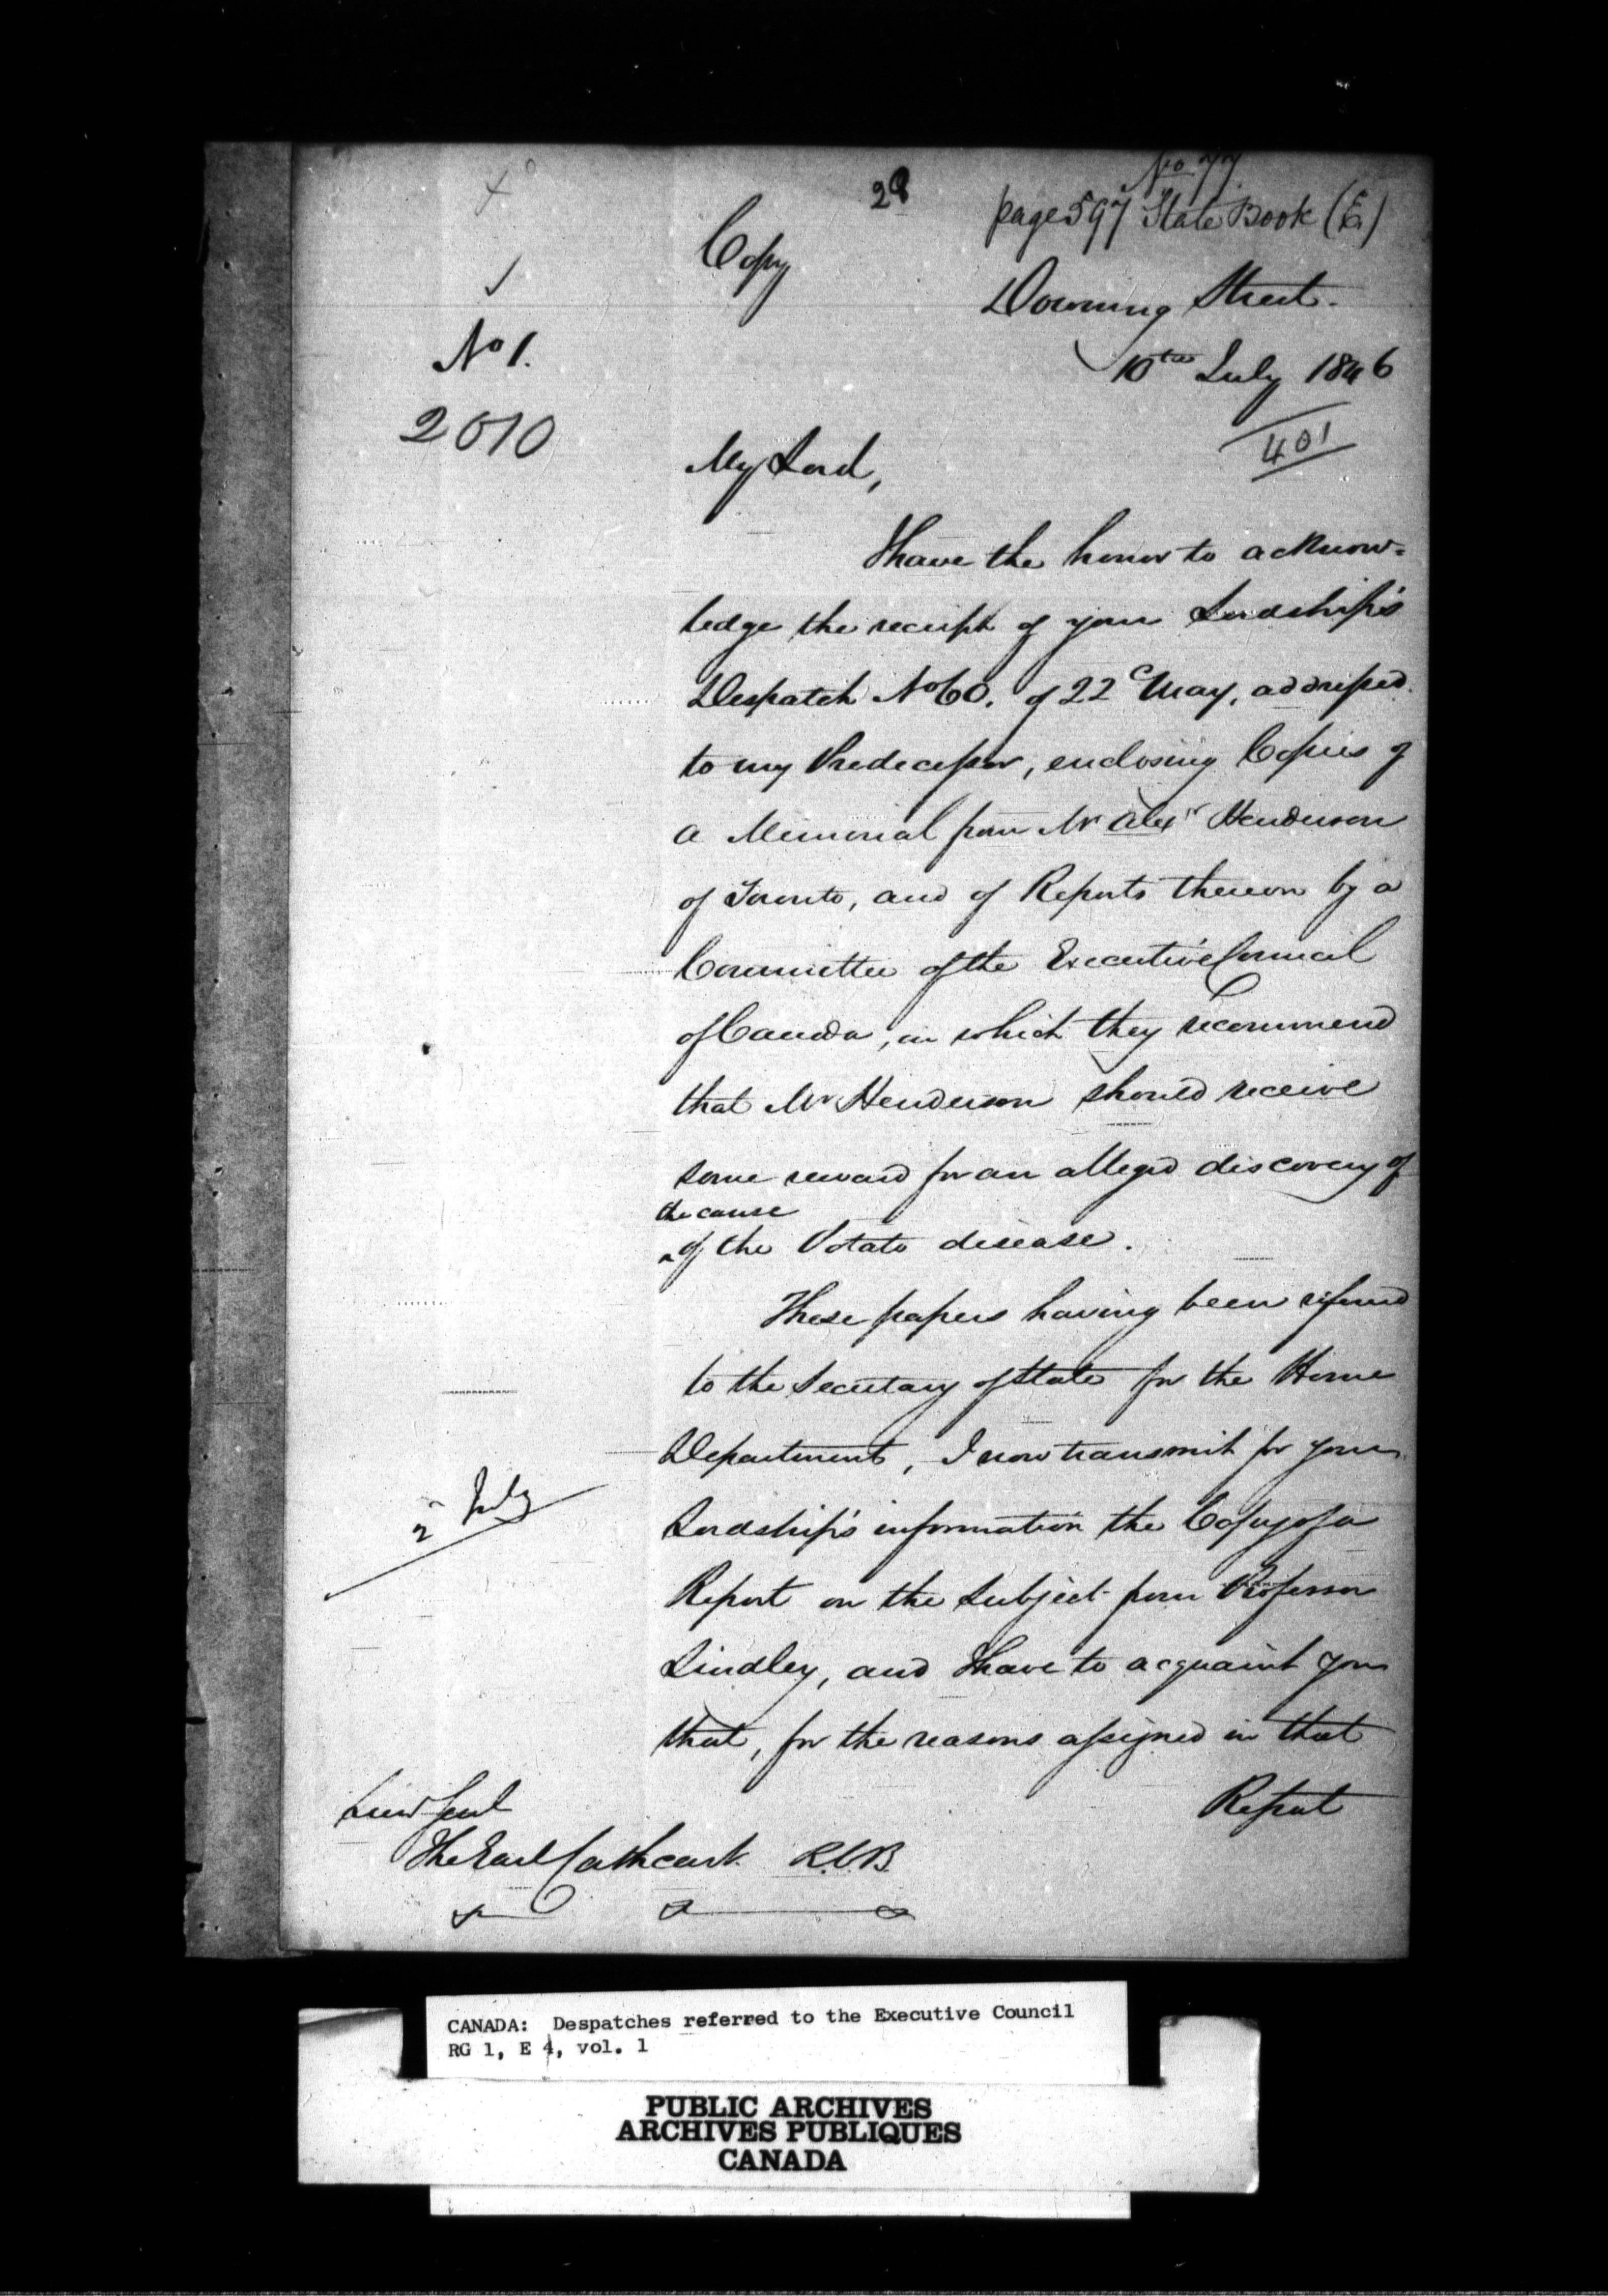 No 77
28
page 597 State Book (E)
Copy
Downing Street.
No 1.
10th July 1846
2010
401
My Lord,
I have the honor to acknow=
ledge the receipt of your Lordship's
Despatch No 60. of 22d May, addressed
to my Predecessor, enclosing Copies of
a Memorial from Mr Alexr Henderson
of Toronto, and of Reports thereon by a
Committee of the Executive Council
of Canada, in which they recommend
that Mr Henderson should receive
some reward for an alleged discovery of
the cause
of the Potato disease.
These papers having been referred
to the Secretary of State for the Home
Department, I now transmit for your
2 July
Lordship's information the Copy of a
Report on the subject from Professor
Lindley, and I have to acquaint you
that, for the reasons assigned in that
Report
Lieut Genl
The Earl Cathcart K.C.B.
CANADA: Despatches referred to the Executive Council
RG 1, E 4, vol. 1
PUBLIC ARCHIVES
ARCHIVES PUBLIQUES
CANADA